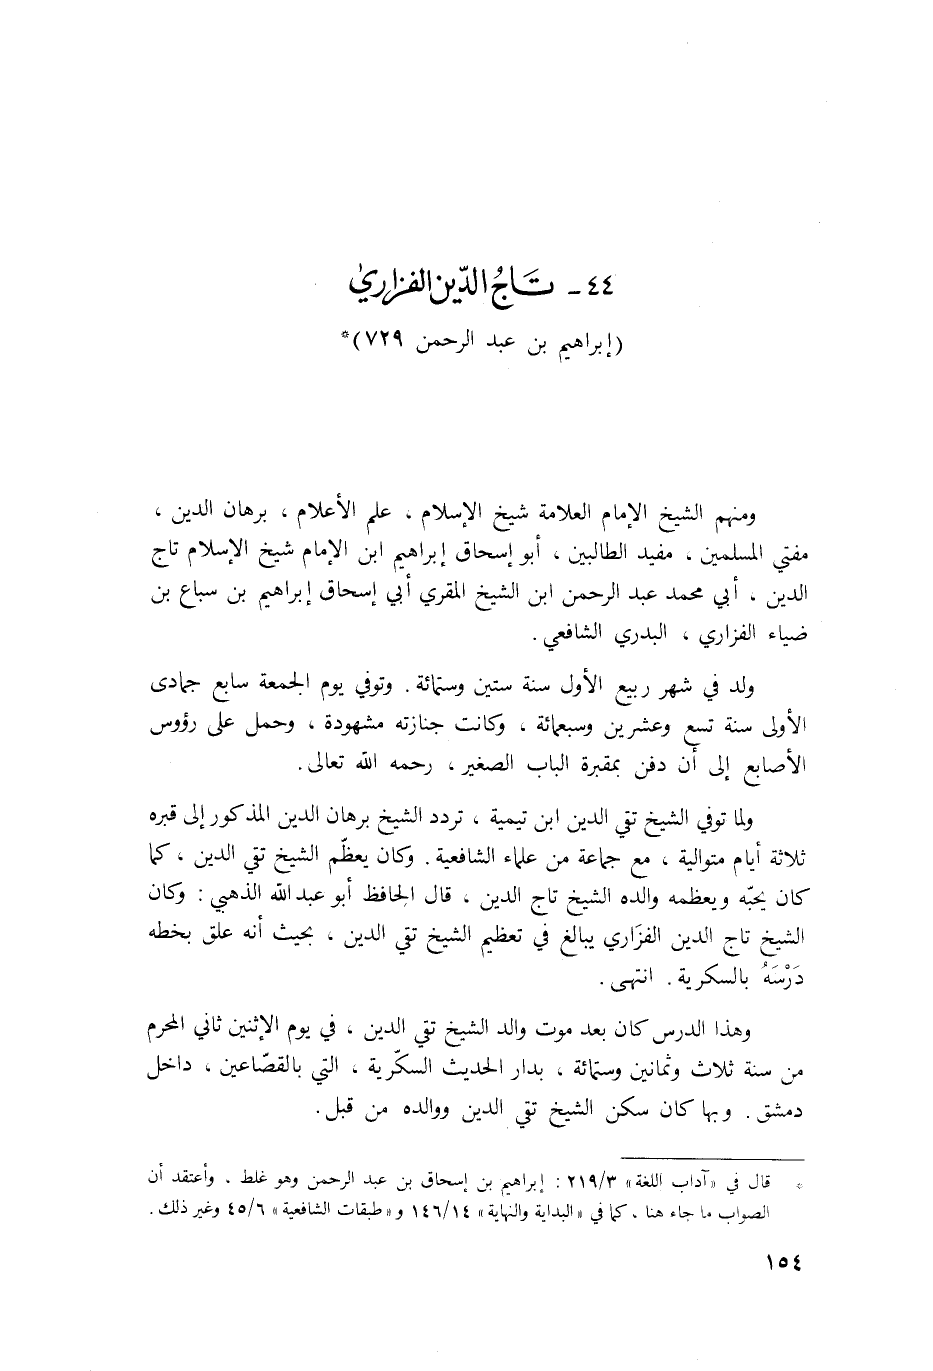 ٤٤ - تَاجُ الدّين الفزاري
(إبراهيم بن عبد الرحمن ٧٢٩)*
ومنهم الشيخ الإمام العلامة شيخ الإسلام ، علم الأعلام ، برهان الدين ،
مفتي المسلمين ، مفيد الطالبين ، أبو إسحاق إبراهيم ابن الإمام شيخ الإسلام تاج
الدين ، أبي محمد عبد الرحمن ابن الشيخ المقري أبي إسحاق إبراهيم بن سباع بن
ضياء الفزاري ، البدري الشافعي .
ولد في شهر ربيع الأول سنة ستين وستمائة . وتوفي يوم الجمعة سابع جمادى
الأولى سنة تسع وعشرين وسبعمائة ، وكانت جنازته مشهودة ، وحمل على رؤوس
الأصابع إلى أن دفن بمقبرة الباب الصغير ، رحمه الله تعالى .
ولما توفي الشيخ تقي الدين ابن تيمية ، تردد الشيخ برهان الدين المذكور إلى قبره
ثلاثة أيام متوالية ، مع جماعة من علماء الشافعية . وكان يعظّم الشيخ تقي الدين ، كما
كان يحبّه ويعظمه والده الشيخ تاج الدين ، قال الحافظ أبو عبد الله الذهبي : وكان
الشيخ تاج الدين الفزَاري يبالغ في تعظيم الشيخ تقي الدين ، بحيث أنه علق بخطه
دَرْسَهُ بالسكرية . انتهى .
وهذا الدرس كان بعد موت والد الشيخ تقي الدين ، في يوم الإثنين ثاني المحرم
من سنة ثلاث وثمانين وستمائة ، بدار الحديث السكّرية ، التي بالقصّاعين ، داخل
دمشق . وبها كان سكن الشيخ تقي الدين ووالده من قبل .
* قال في «آداب اللغة» ٢١٩/٣ : إبراهيم بن إسحاق بن عبد الرحمن وهو غلط . وأعتقد أن
الصواب ما جاء هنا . كما في «البداية والنهاية» ١٤٦/١٤ و«طبقات الشافعية» ٤٥/٦ وغير ذلك .
١٥٤